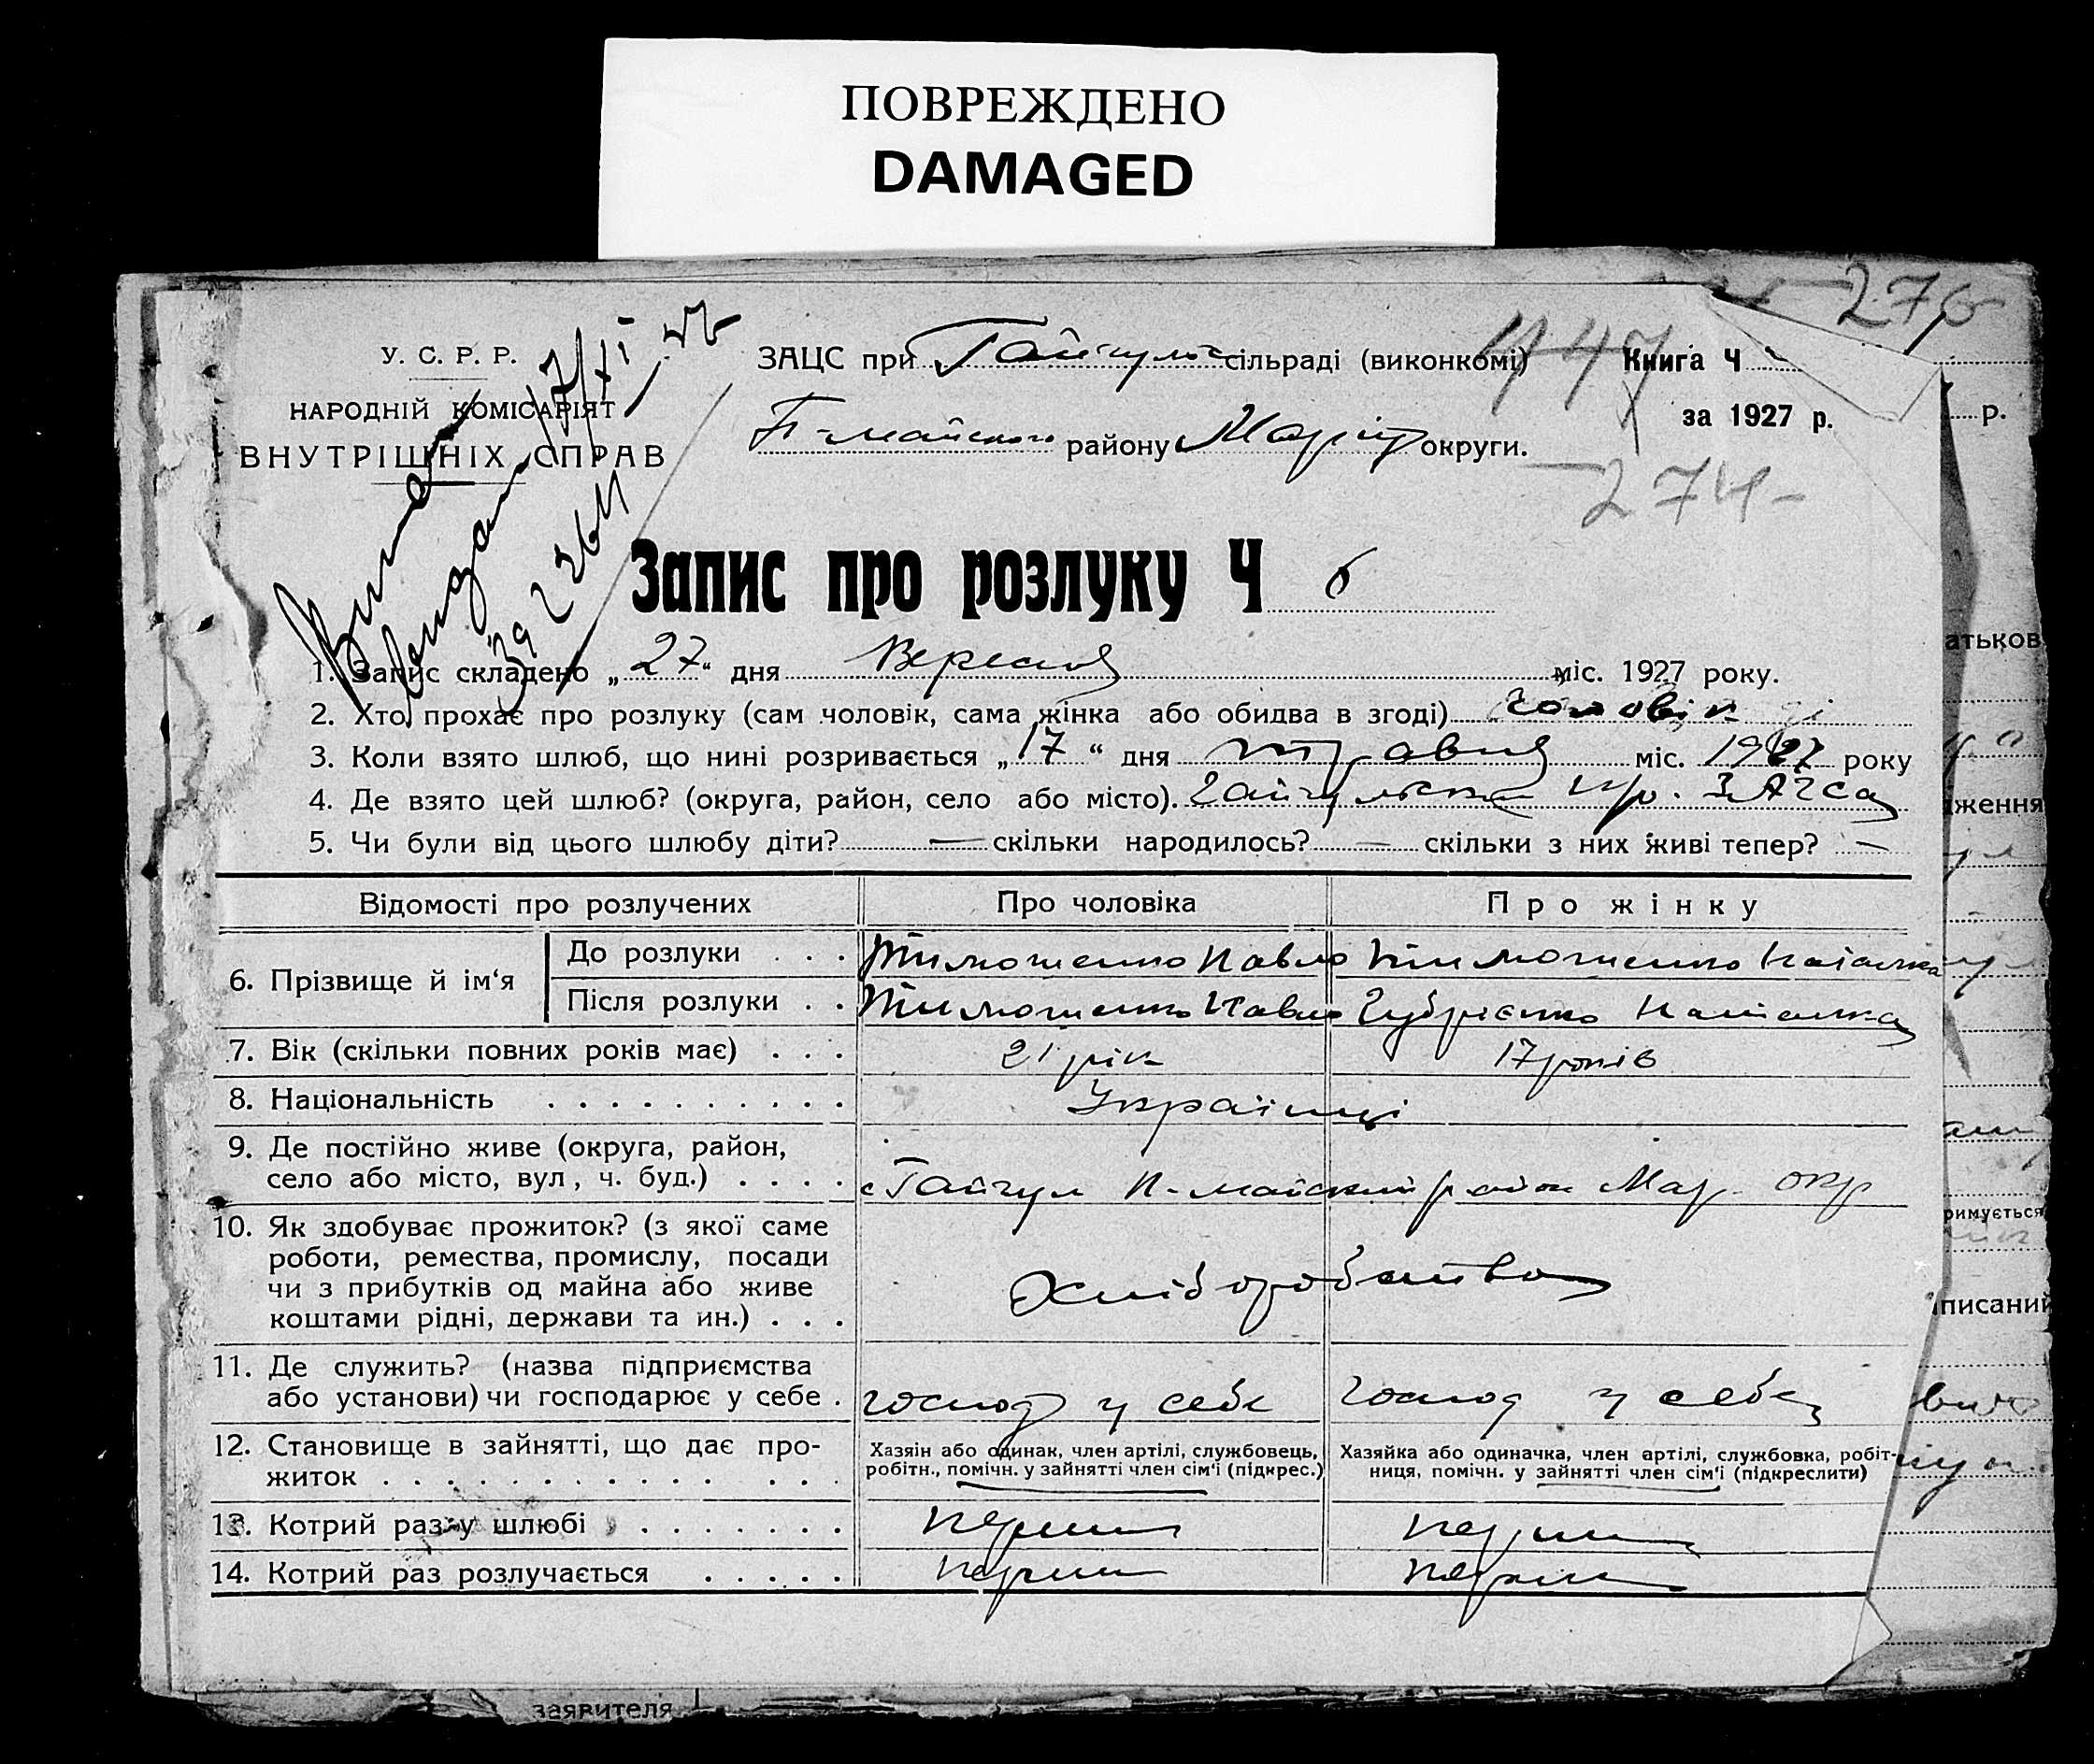 ПОВРЕЖДЕНО
DAMAGED
276
У. С. Р. Р.
НАРОДНІЙ КОМІСАРІЯТ
ВНУТРІШНІХ СПРАВ
ЗАЦС при Гайчульс сільраді (виконкомі)
П-майського району Маріу округи.
447
Книга Ч
за 1927 р.
р.
274-
17/XI
392264
Запис про розлуку Ч 6
1. Запис складено „27“ дня Вересня міс. 1927 року.
2. Хто прохає про розлуку (сам чоловік, сама жінка або обидва в згоді) чоловік
3. Коли взято шлюб, що нині розривається „17“ дня травня міс. 1927 року
4. Де взято цей шлюб? (округа, район, село або місто). Гайчульским ЗАГСа
5. Чи були від цього шлюбу діти? — скільки народилось? — скільки з них живі тепер? —
Відомості про розлучених Про чоловіка Про жінку
6. Прізвище й ім‘я
До розлуки . . . Тимошенко Павло Тимошенко Наталка
Після розлуки . . Тимошенко Павло Губрієнко Наталка
7. Вік (скільки повних років має) . . . 21 рік 17 років
8. Національність . . . . . . . . . . Українці
9. Де постійно живе (округа, район,
село або місто, вул, ч. буд.) . . . . с Гайчул П-майский район Мар. окр
10. Як здобуває прожиток? (з якої саме
роботи, ремества, промислу, посади
чи з прибутків од майна або живе
коштами рідні, держави та ин.) . . .
Хліборобство
11. Де служить? (назва підприємства
або установи) чи господарює у себе .
господ у себе господ у себе
12. Становище в зайнятті, що дає про-
житок . . . . . . . . . . . .
Хазяін або одинак, член артілі, службовець,
робітн., помічн. у зайнятті член сім‘ї (підкрес.)
Хазяйка або одиначка, член артілі, службовка, робіт-
ниця, помічн. у зайнятті член сім‘ї (підкреслити)
13. Котрий раз у шлюбі . . . . . . . перший перший
14. Котрий раз розлучається . . . . . перший перший
атьков
дження
римується
писаний
заявителя